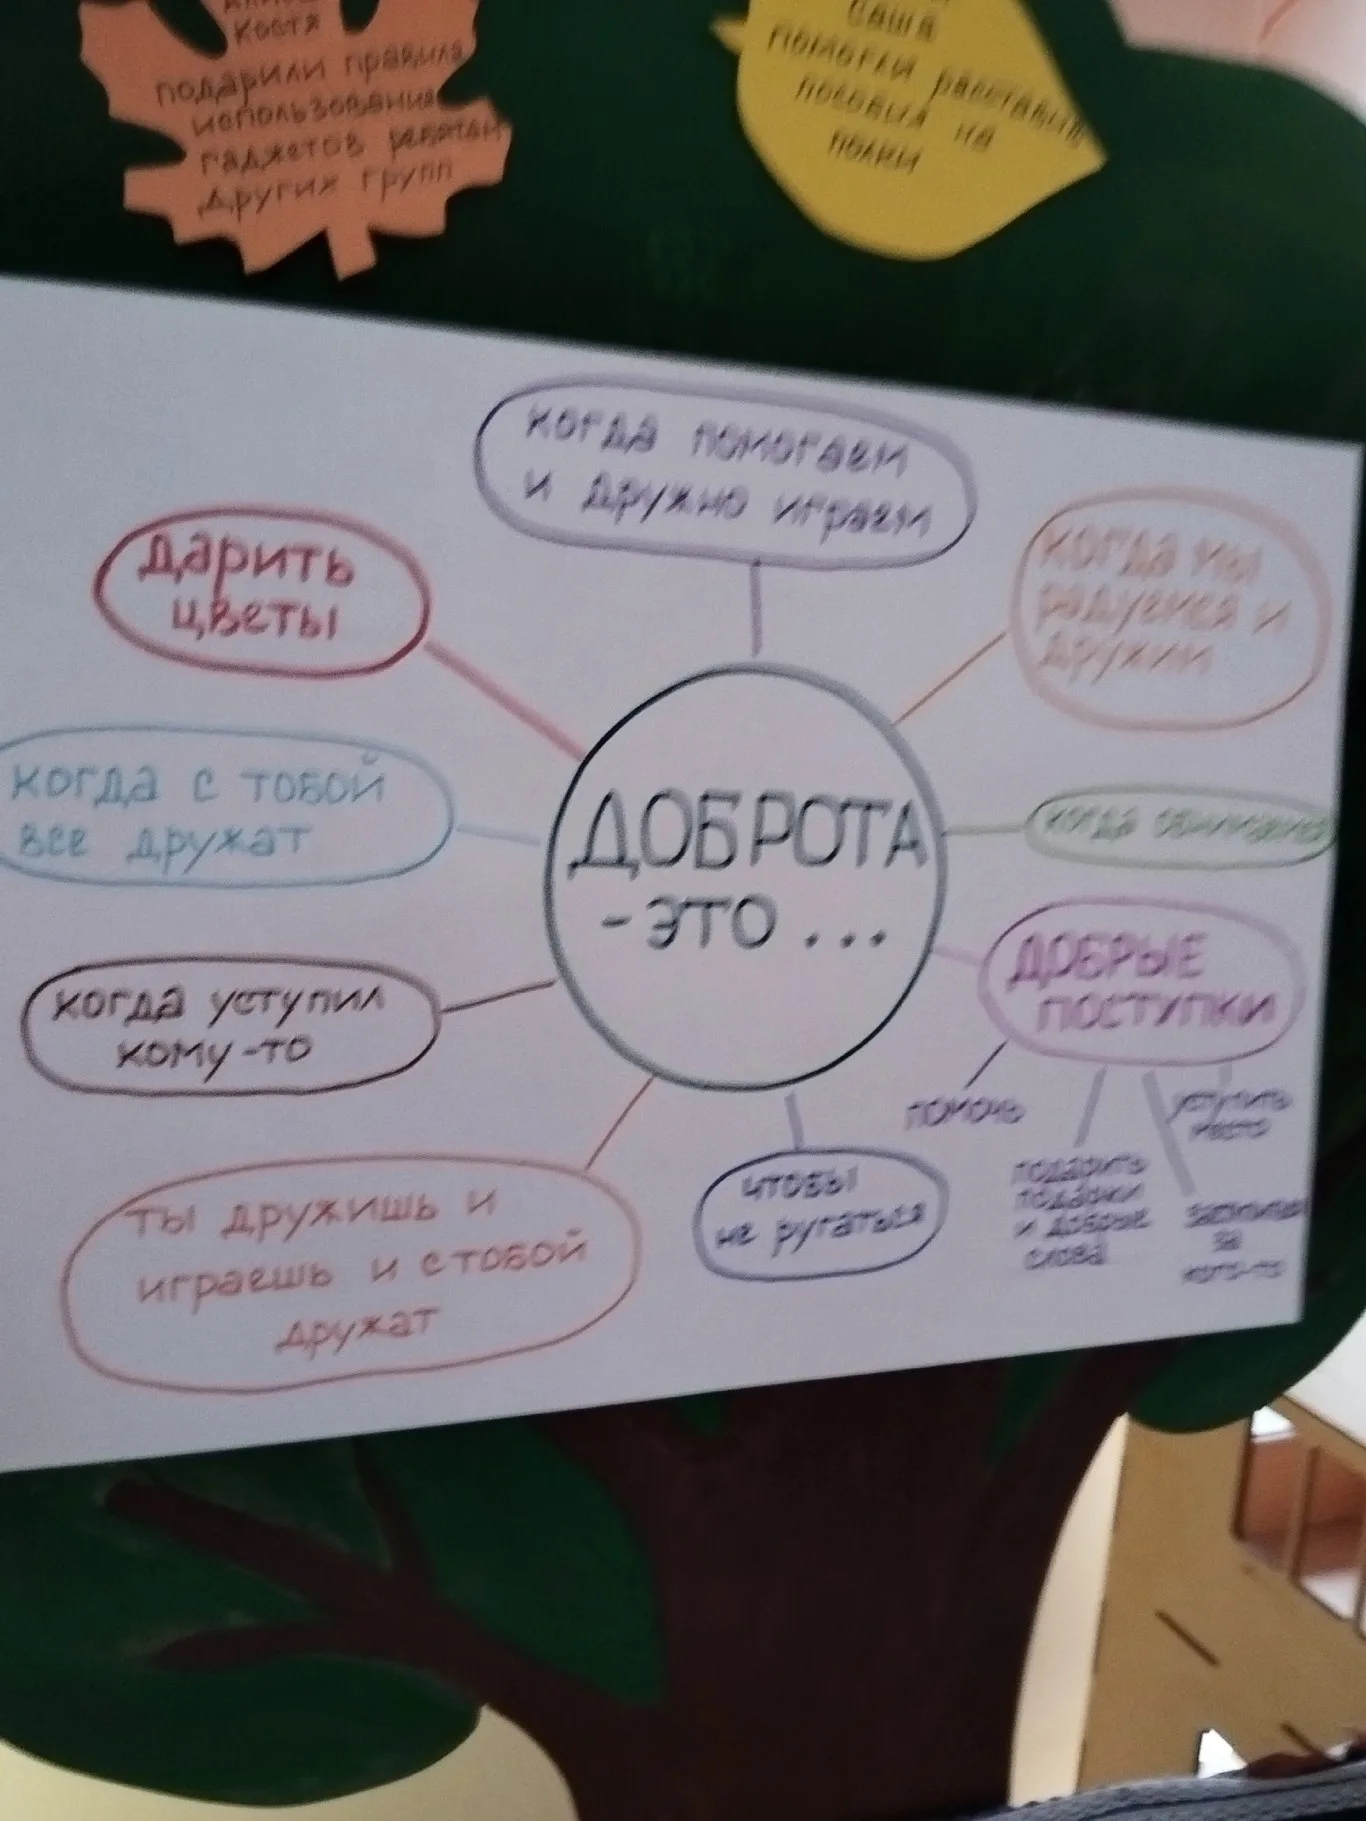 Костя
подарили правила
использования
гаджетов ребятам
других групп
Саша
помогли расставить
пособия на
полки
когда помогаем
и дружно играем
дарить
цветы
когда мы
радуемся и
дружим
когда с тобой
все дружат
ДОБРОТА
-ЭТО...
когда
когда уступил
кому-то
ДОБРЫЕ
ПОСТУПКИ
помочь
подарить
подарки
и добрые
слова
уступить
место
за
кого-то
ты дружишь и
играешь и с тобой
дружат
чтобы
не ругаться